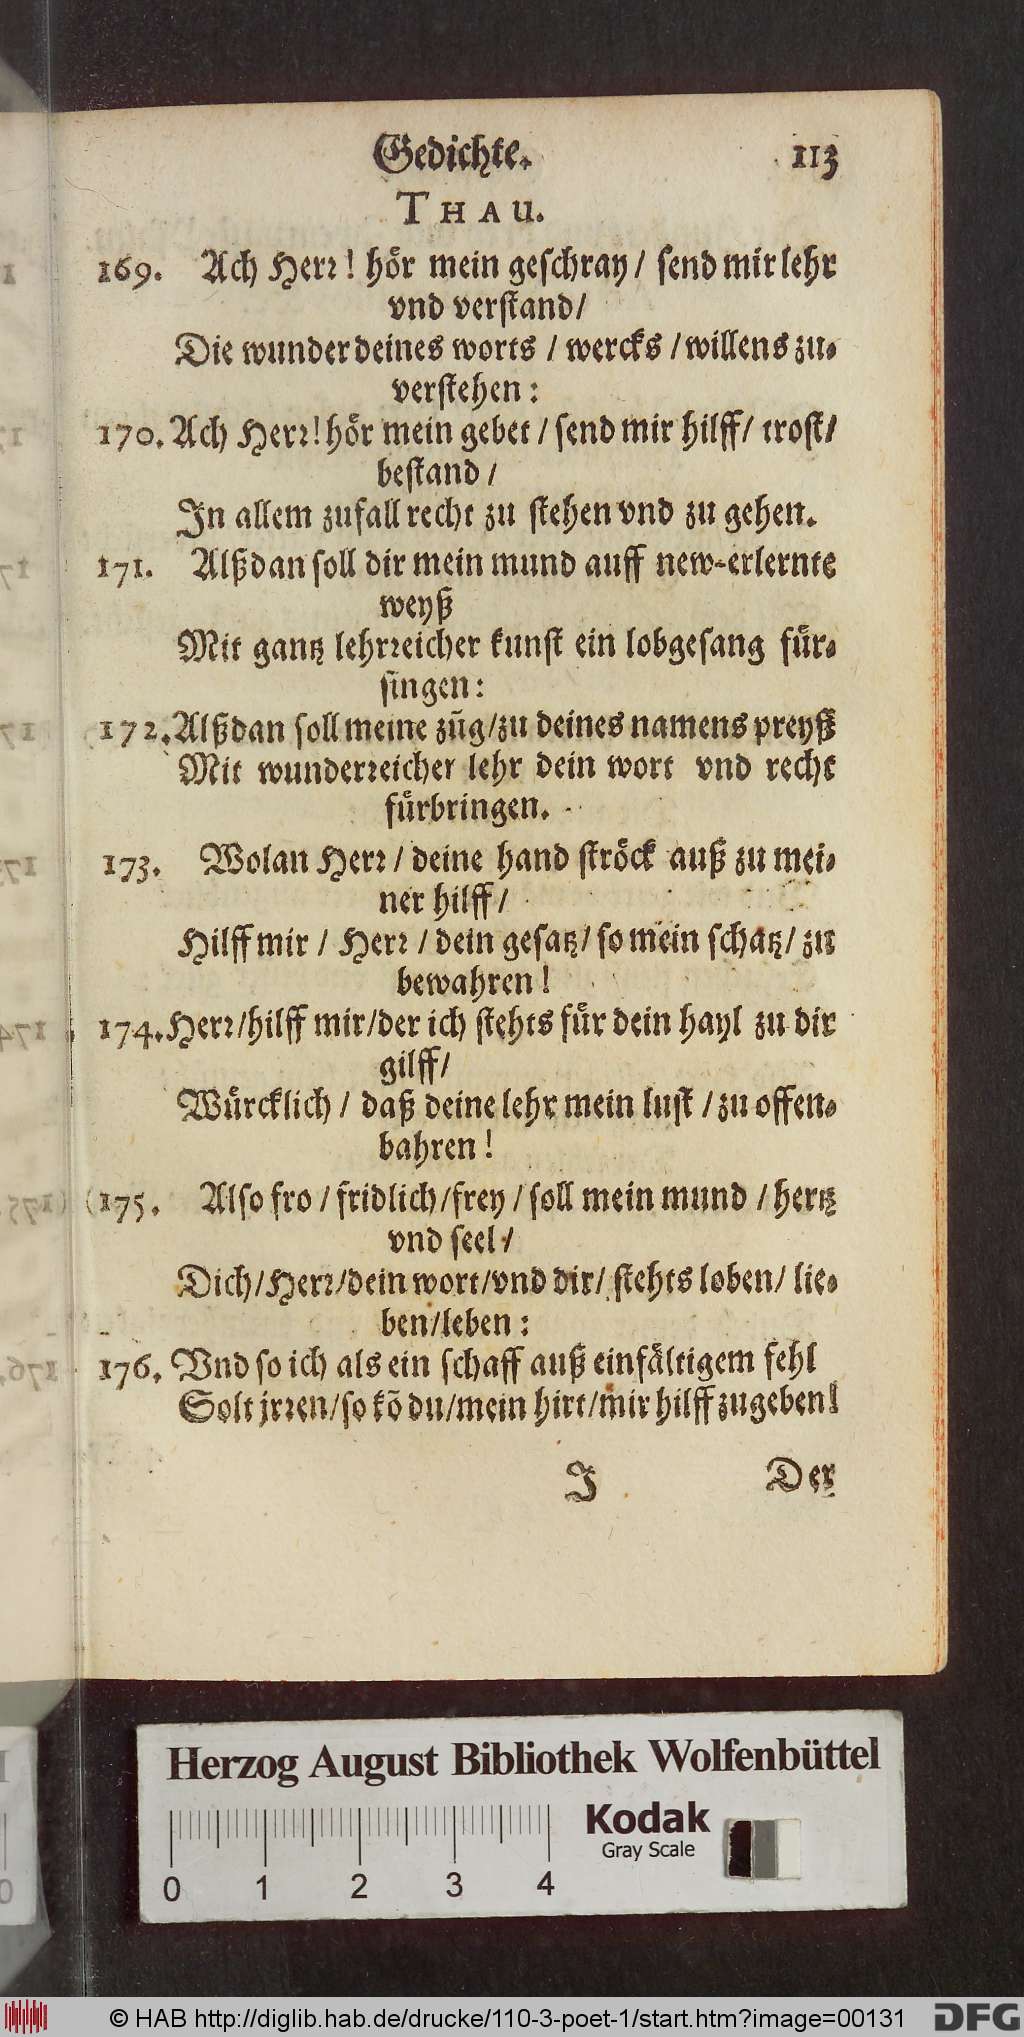 Gedichte. 113
THAU.
169. Ach Herr! hör mein geschray / send mir lehr
vnd verstand /
Die wunder deines worts / wercks / willens zu-
verstehen:
170. Ach Herr! hör mein gebet / send mir hilff / trost /
bestand /
In allem zufall recht zu stehen vnd zu gehen.
171. Alßdan soll dir mein mund auff new-erlernte
weyß
Mit gantz lehrreicher kunst ein lobgesang für-
singen:
172. Alßdan soll meine zũg / zu deines namens preyß
Mit wunderreicher lehr dein wort vnd recht
fürbringen.
173. Wolan Herr / deine hand ströck auß zu mei-
ner hilff /
Hilff mir / Herr / dein gesatz / so mein schatz / zu
bewahren!
174. Herr / hilff mir / der ich stehts für dein hayl zu dir
gilff /
Würcklich / daß deine lehr mein lust / zu offen-
bahren!
(175. Also fro / fridlich / frey / soll mein mund / hertz
vnd seel /
Dich / Herr / dein wort / vnd dir / stehts loben / lie-
ben / leben:
176. Vnd so ich als ein schaff auß einfältigem fehl
Solt jrren / so kõ du / mein hirt / mir hilff zugeben!
I Der
Herzog August Bibliothek Wolfenbüttel
Kodak
Gray Scale
0 1 2 3 4
© HAB http://diglib.hab.de/drucke/110-3-poet-1/start.htm?image=00131
DFG